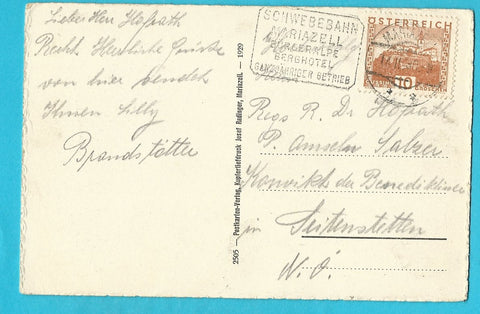 Lieber Herr Hofrath
Recht Herzliche Grüße
von hier sendet
Ihnen Lilly
Brandstätter
2505 — Postkarten-Verlag, Kupfertiefdruck Josef Radinger, Mariazell. — 1929
SCHWEBEBAHN
MARIAZELL
BÜRGERALPE
BERGHOTEL
GANZJÄHRIGER BETRIEB
ÖSTERREICH
10
MARIAZELL
R. Dr Hofrath
P. Anselm Salzer
Konvikt der Benediktiner
in Seitenstetten
N. Ö.